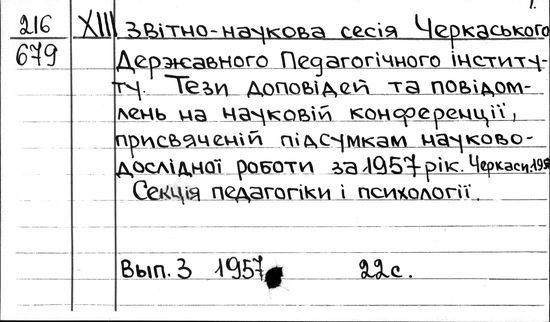 1.
216 XIII Звітно-наукова сесія Черкаського
679 Державного Педагогічного інститу-
ту. Тези доповідей та повідом-
лень на науковій конференції,
присвяченій підсумкам науково-
дослідної роботи за 1957 рік. Черкаси,
Секція педагогіки і психології.
Вып. 3 1957 22 с.